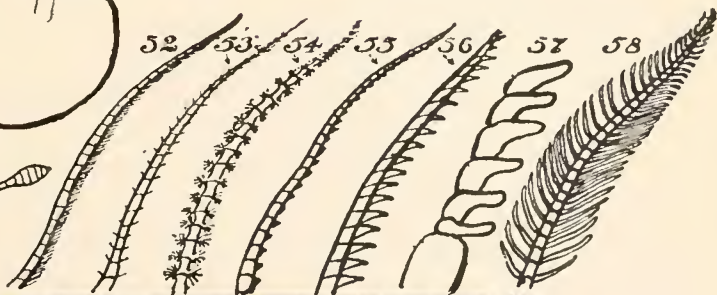 52 53 54 55 56 57 58